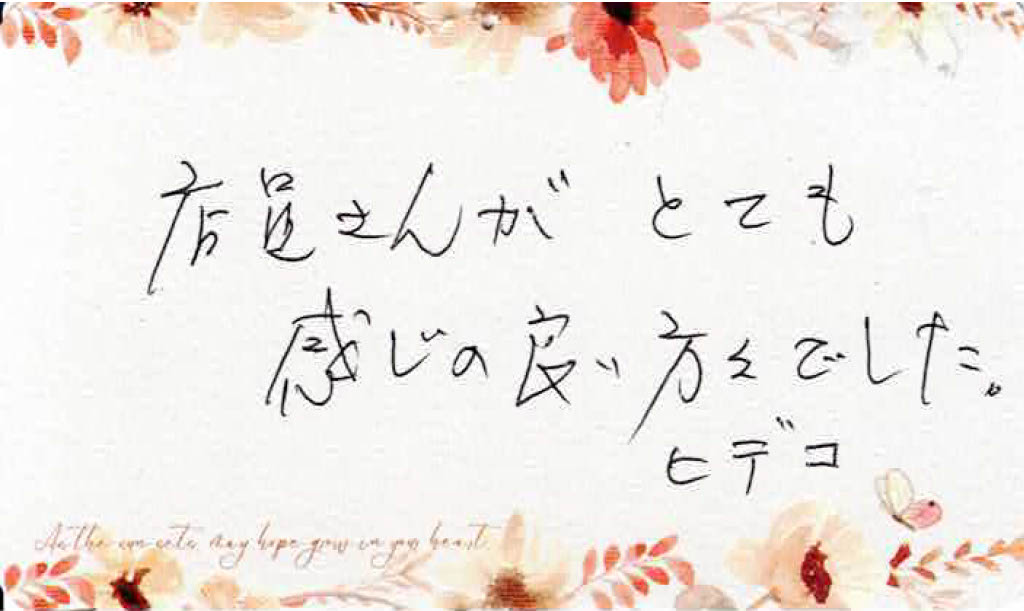 店員さんが とても
感じの良い方々でした。
ヒデコ
As the sun sets, may hope grow in your heart.